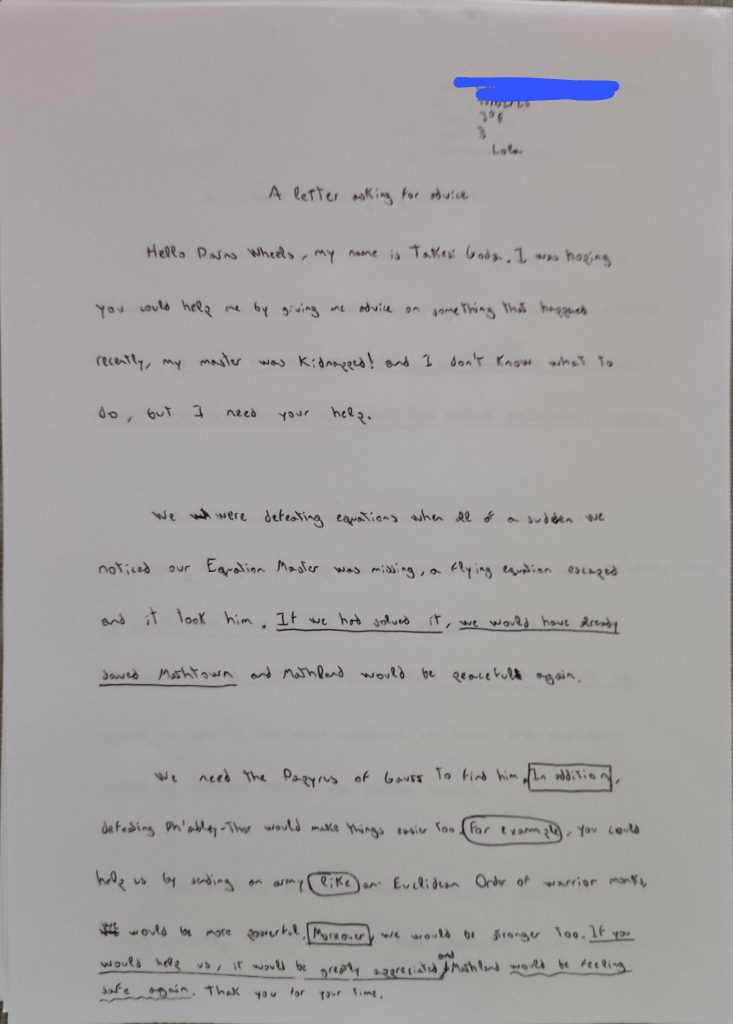 3
Lola
A letter asking for advice
Hello Darns Wheels, my name is Takesi Goda. I was hoping
you could help me by giving me advice on something that happened
recently, my master was kidnapped! and I don't know what to
do, but I need your help.
We were defeating equations when all of a sudden we
noticed our Equation Master was missing, a flying equation escaped
and it look him. If we had solved it, we would have already
saved Mathtown and Mathland would be peaceful again.
We need the Papyrus of Gauss to find him. In addition,
defeating Ph'abley-Thor would make things easier too. For example, you could
help us by sending an army like an Euclidean Order of warrior monks,
would be more powerful. Moreover, we would be stronger too. If you
would help us, it would be greatly appreciated and Mathland would be feeling
safe again. Thak you for your time.